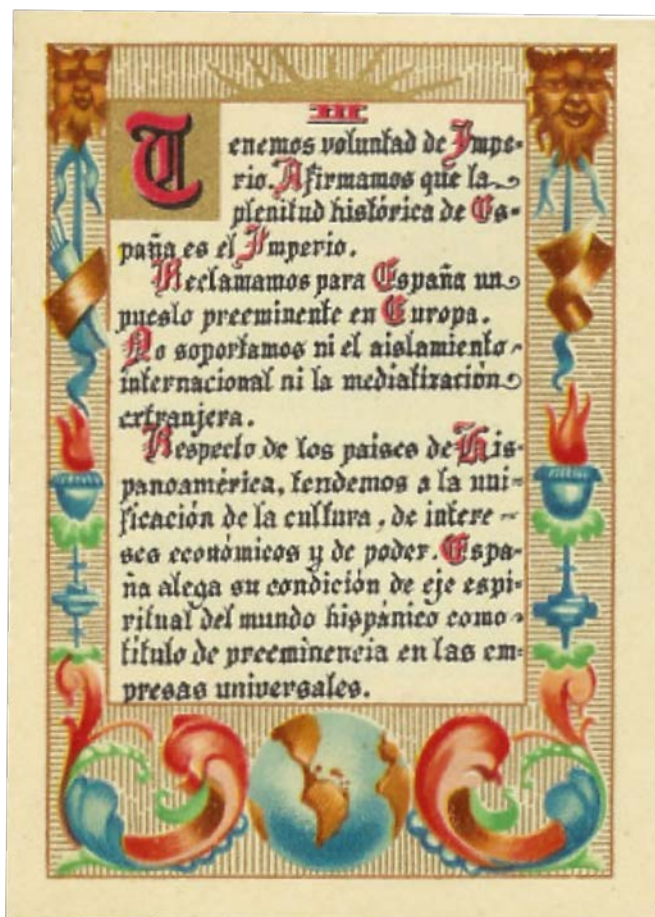 III
Tenemos voluntad de Impe-
rio. Afirmamos que la
plenitud histórica de Es-
paña es el Imperio.
Reclamamos para España un
puesto preeminente en Europa.
No soportamos ni el aislamiento
internacional ni la mediatización
extranjera.
Respecto de los paises de His-
panoamérica, tendemos a la uni-
ficación de la cultura, de intere-
ses económicos y de poder. Espa-
ña alega su condición de eje espi-
ritual del mundo hispánico como
título de preeminencia en las em-
presas universales.